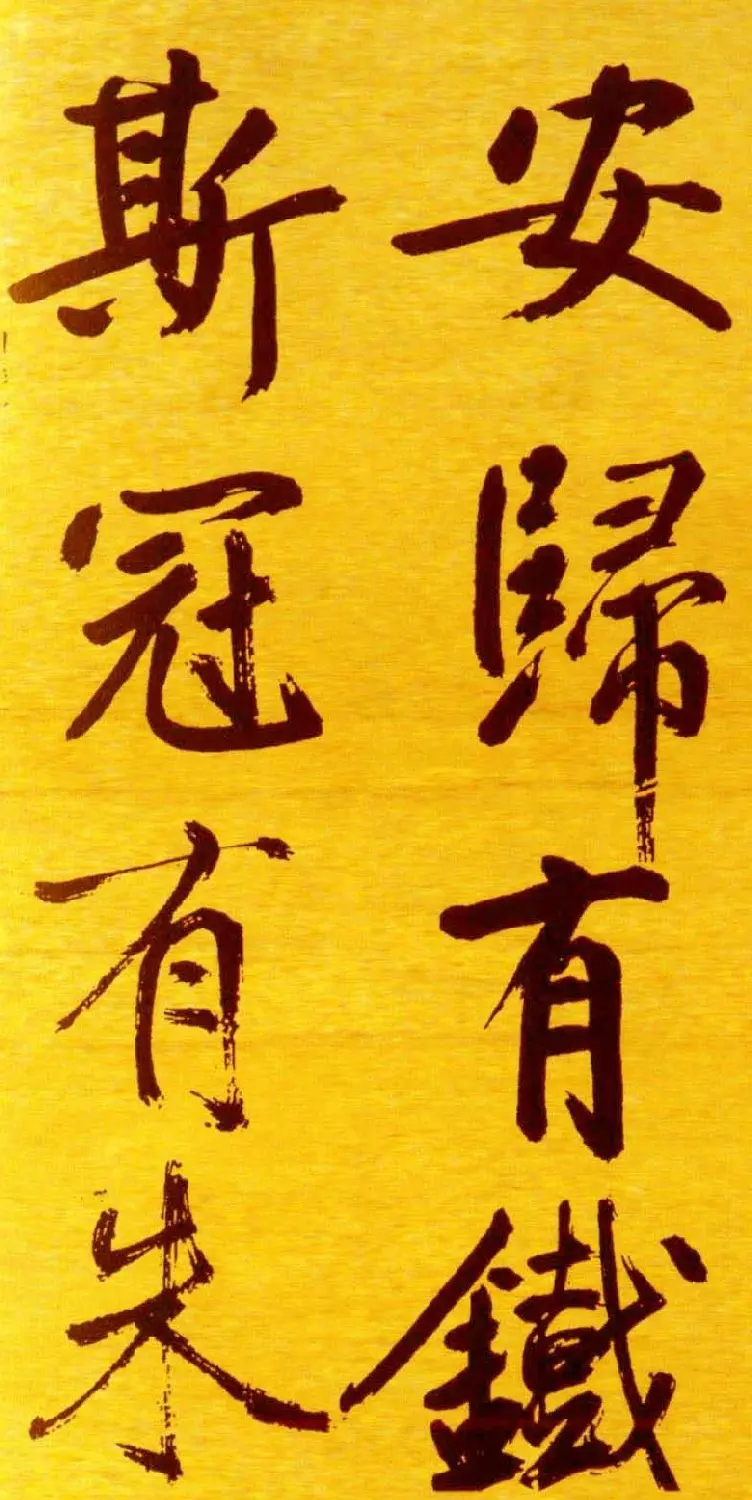 安歸有鐵
斯冠有朱